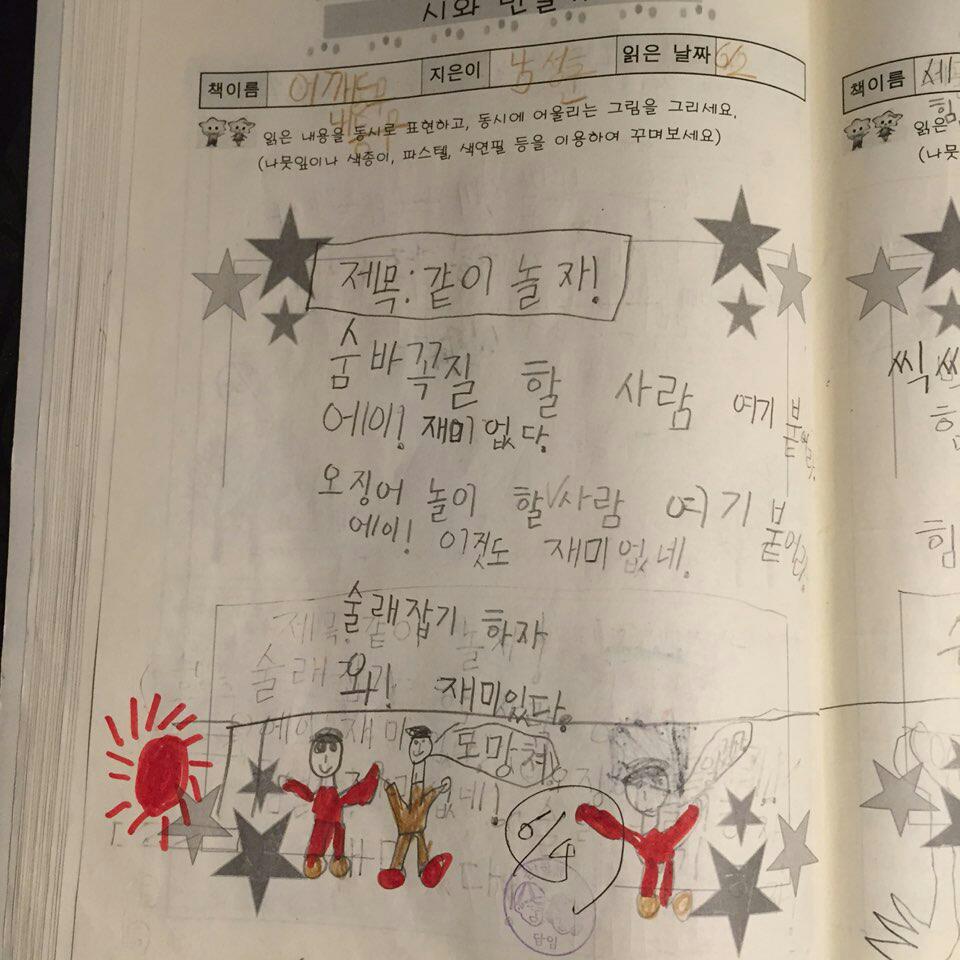 시와 만날
책이름 어깨동무 내동무 지은이 남성훈 읽은 날짜 6/2
읽은 내용을 동시로 표현하고, 동시에 어울리는 그림을 그리세요.
(나뭇잎이나 색종이, 파스텔, 색연필 등을 이용하여 꾸며보세요)
제목:같이 놀자!
숨바꼭질 할 사람 여기 붙어라.
에이! 재미없다.
오징어 놀이 할∨사람 여기 붙어라.
에이! 이것도 재미없네.
술래잡기 하자
와! 재미있다.
도망쳐
6/4
담임
책이름
읽은
씩씩
힘